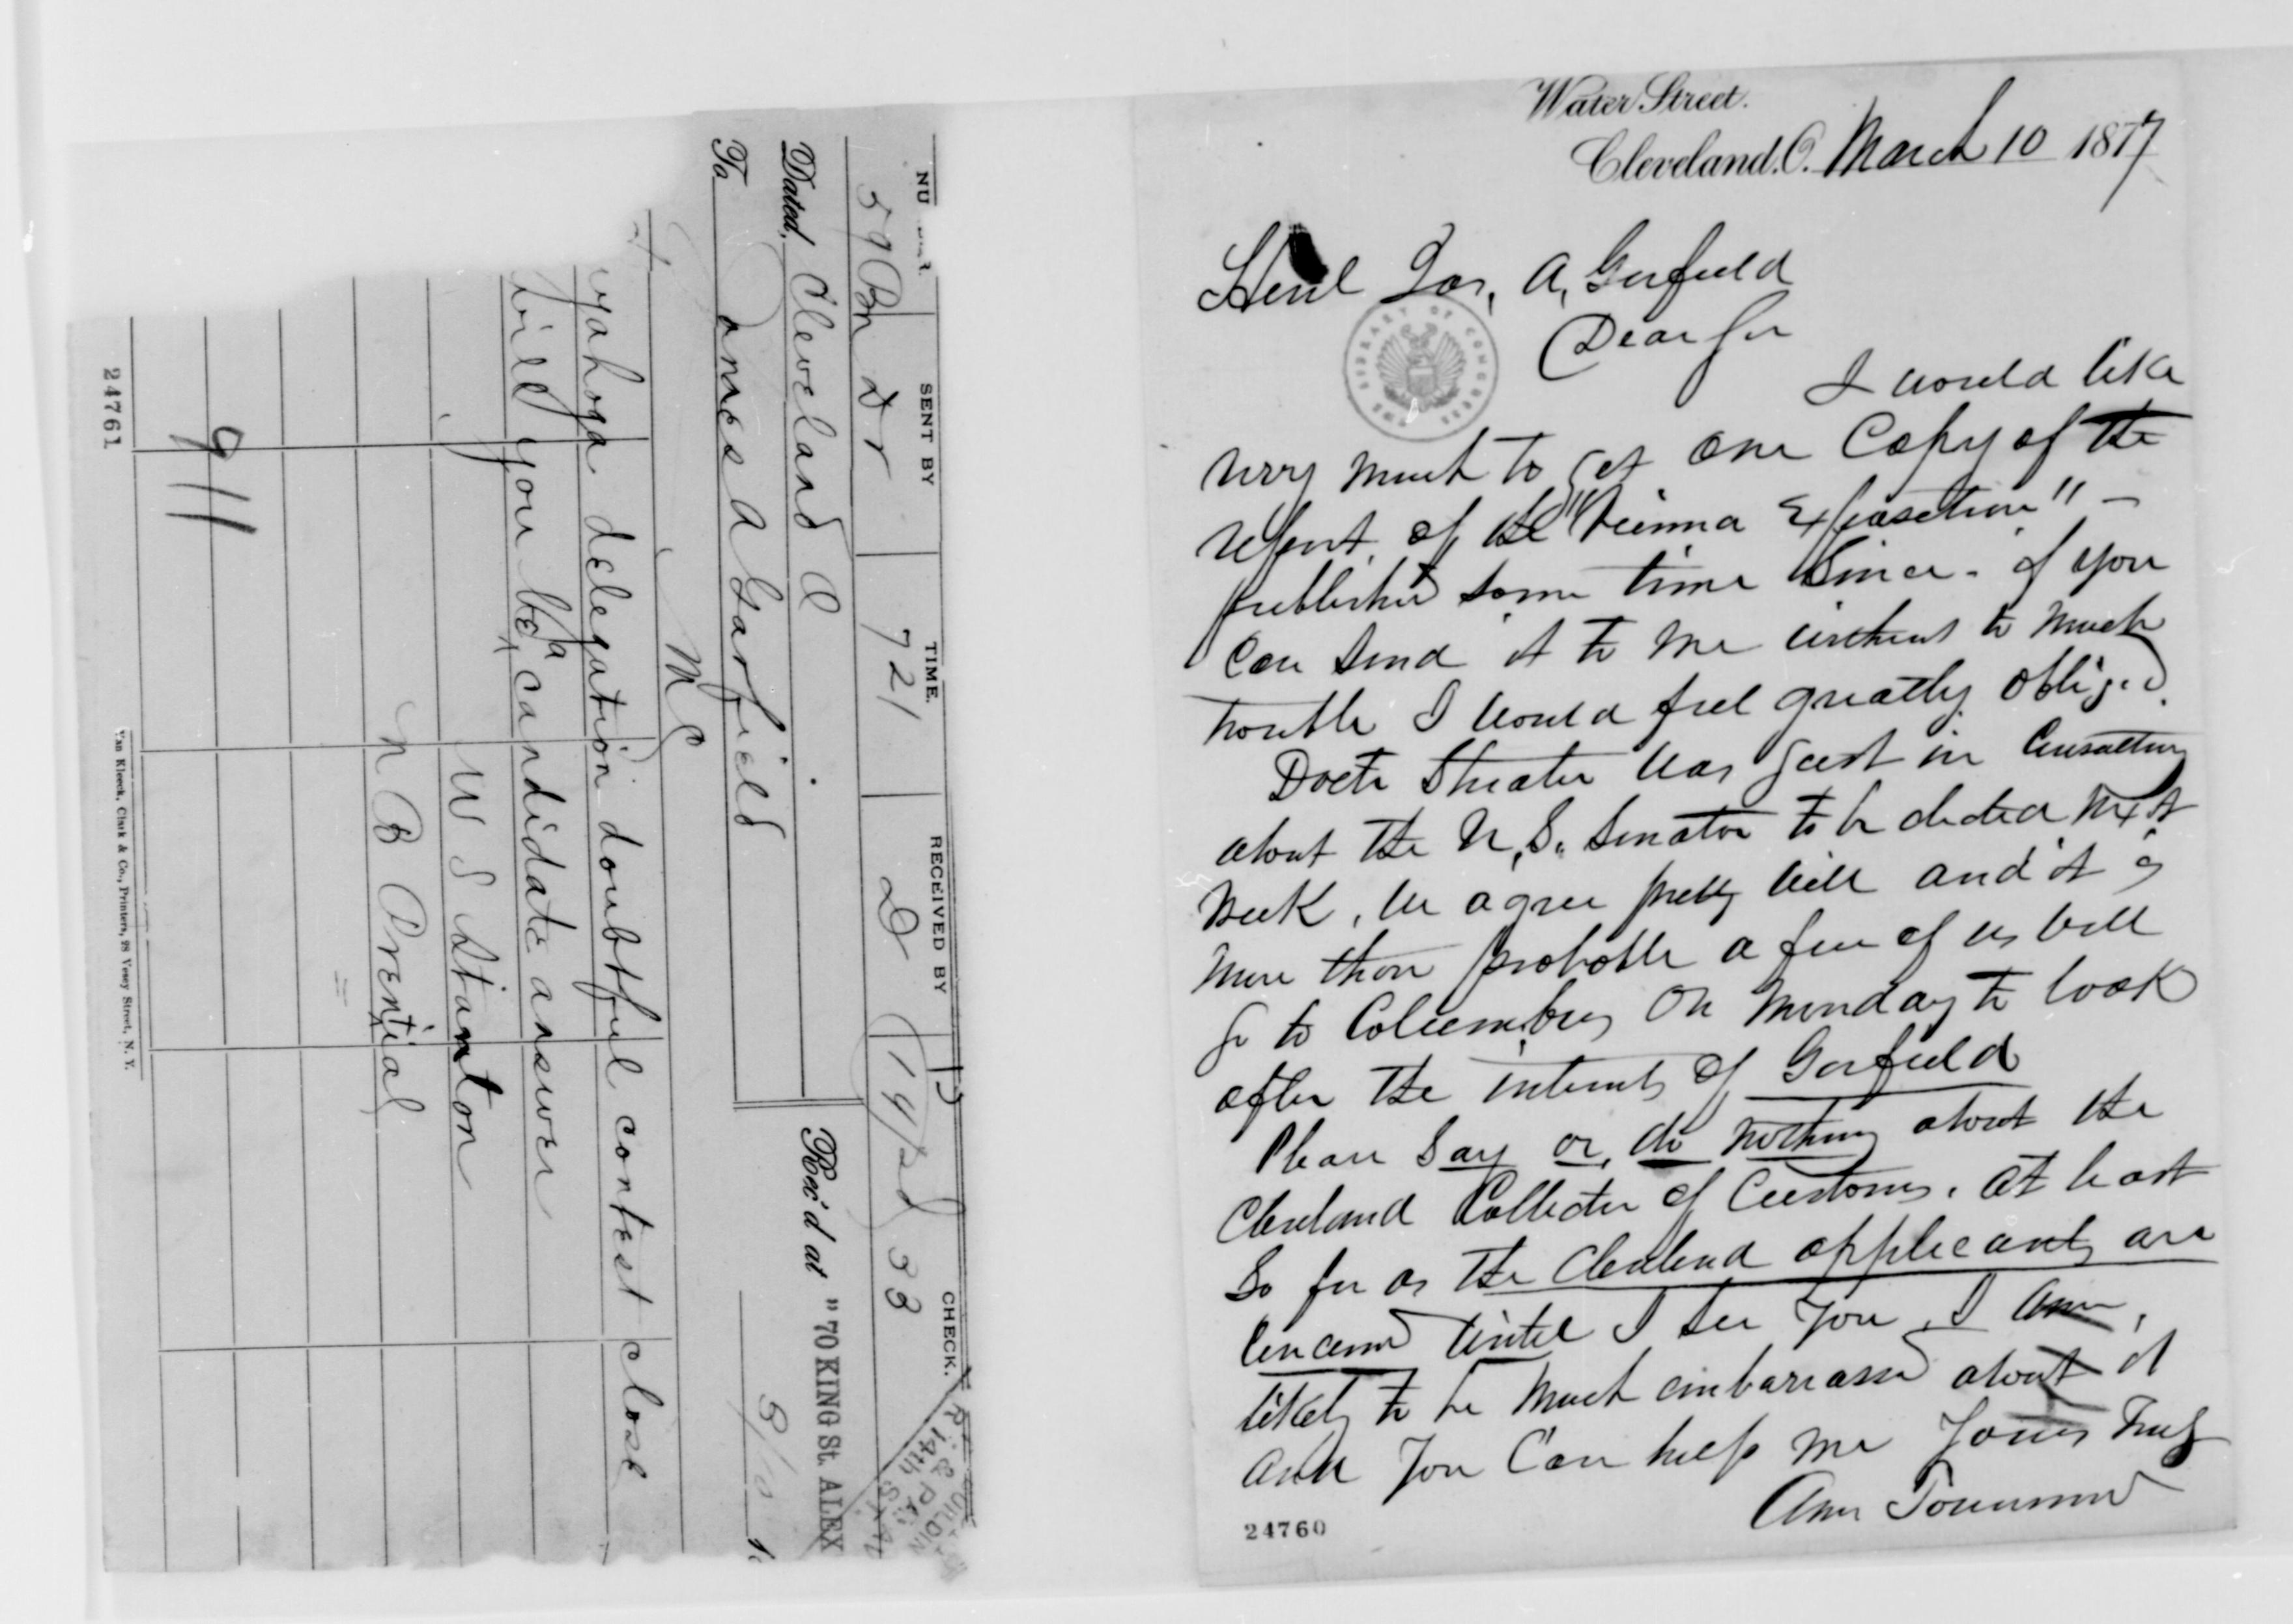 NU
SENT BY
TIME.
RECEIVED BY
CHECK.
59 Bn
Dr
721
D
33
Dated, Cleveland O
Rec'd at "70 KING St. ALEX
To
ames A Garfield
3/10
M C
yahoga delegation doubtful contest close
will you be a candidate answer
W S Stanton
N B Prential
911
24761
Van Kleeck, Clark & Co., Printers, 28 Vesey Street, N. Y.
Water Street.
Cleveland, O. March 10 1877
Genl Jas, A, Garfield
Dear Sir
I would like
very much to get one Copy of the
report of the "Vienna Exposition" -
published some time since - if you
can send it to me without to much
trouble I would feel greatly obliged.
Doctr Streator was just in consulting
about the U, S. Senator to be elected next
week, we agree pretty well and it is
more than probable a few of us will
go to Columbus on Monday to look
after the interests of Garfield
Please say or do nothing about the
Cleveland Collector of Customs. at least
so far as the Cleveland applicants are
concerned until I see you, I am
likely to be much embarrassed about it
and you can help me Yours Truly
Amos Townsend
24760
THE LIBRARY OF CONGRESS